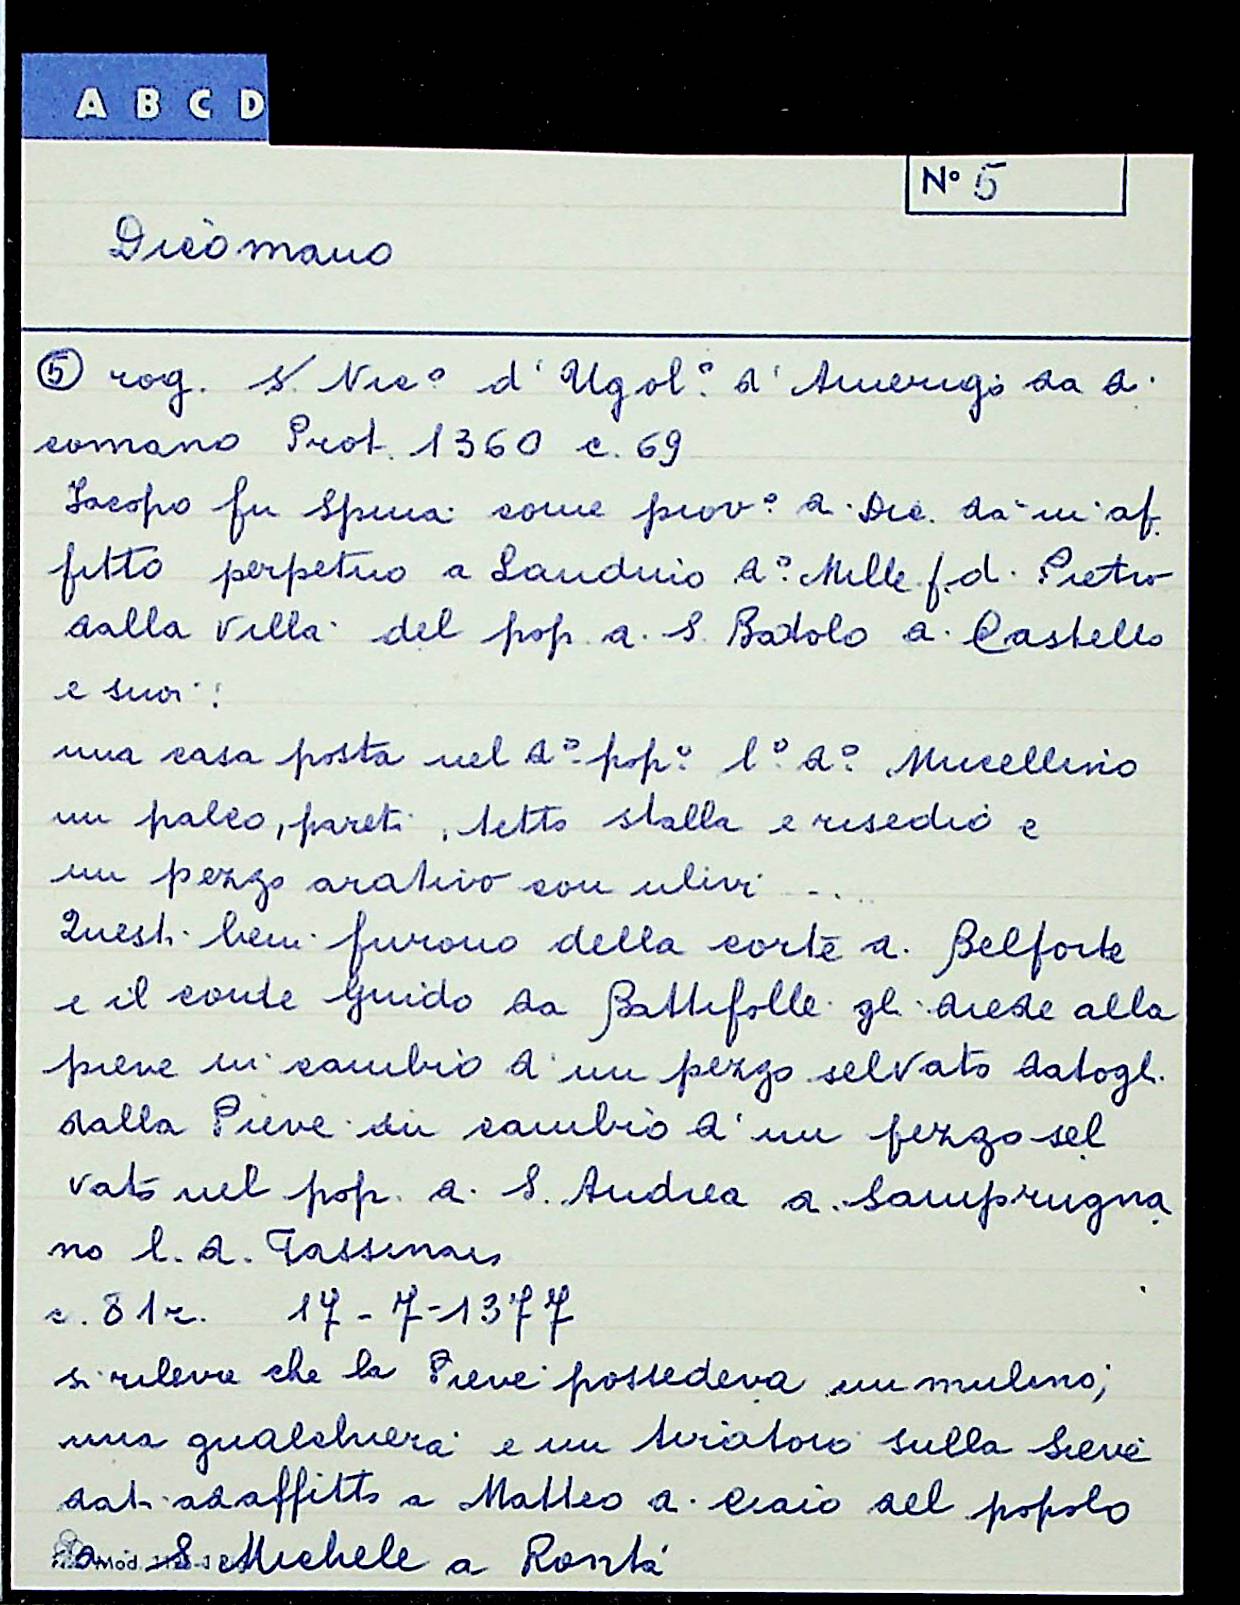 A B C D
N° 5
Dicomano
⑤ rog. S. Nic° d' Ugol° d' Amerigo da Di
comano Prot. 1360 c. 69
Jacopo fu Spina come piov° di Dic. dà in af
fitto perpetuo a Landino d° Mille f. d. Pietro
dalla Villa del pop. di S. Batolo a Castello
e suoi:
una casa posta nel d° pop° l° d° Mucellino
un palco, pareti, tetto stalla e risedio e
un pezzo arativo con ulivi ...
Questi beni furono della corte di Belforte
e il conte Guido da Battifolle gli diede alla
pieve in cambio d'un pezzo selvato datogli
dalla Pieve in cambio d'un pezzo sel
vato nel pop. di S. Andrea a Samprugna
no l. d. Tassinaia
c. 81r. 17-7-1377
si rileva che la Pieve possedeva un mulino,
una gualchiera e un tiratoio sulla Sieve
dati ad affitto a Matteo di del popolo
di S Michele a Ronta